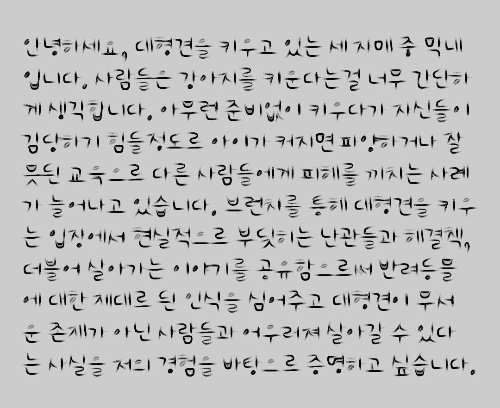 안녕하세요, 대형견을 키우고 있는 세 자매 중 막내
입니다. 사람들은 강아지를 키운다는걸 너무 간단하
게 생각합니다. 아무런 준비없이 키우다가 자신들이
감당하기 힘들정도로 아이가 커지면 파양하거나 잘
못된 교육으로 다른 사람들에게 피해를 끼치는 사례
가 늘어나고 있습니다. 브런치를 통해 대형견을 키우
는 입장에서 현실적으로 부딪히는 난관들과 해결책,
더불어 살아가는 이야기를 공유함으로써 반려동물
에 대한 제대로 된 인식을 심어주고 대형견이 무서
운 존재가 아닌 사람들과 어우러져 살아갈 수 있다
는 사실을 저의 경험을 바탕으로 증명하고 싶습니다.